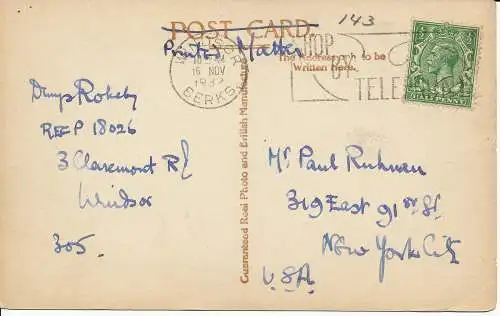 143
POST CARD
Printed Matter
The Address only to be
Written Here.
WINDSOR
16 NOV
193
BERKS
BY
TELE
HALFPENNY
Guaranteed Real Photo and British Manufacture
Denys Rokeby
REF P 18026
3 Claremont Rd
Windsor
305.
Mr Paul Ruhman
319 East 91st St.
New York City
USA